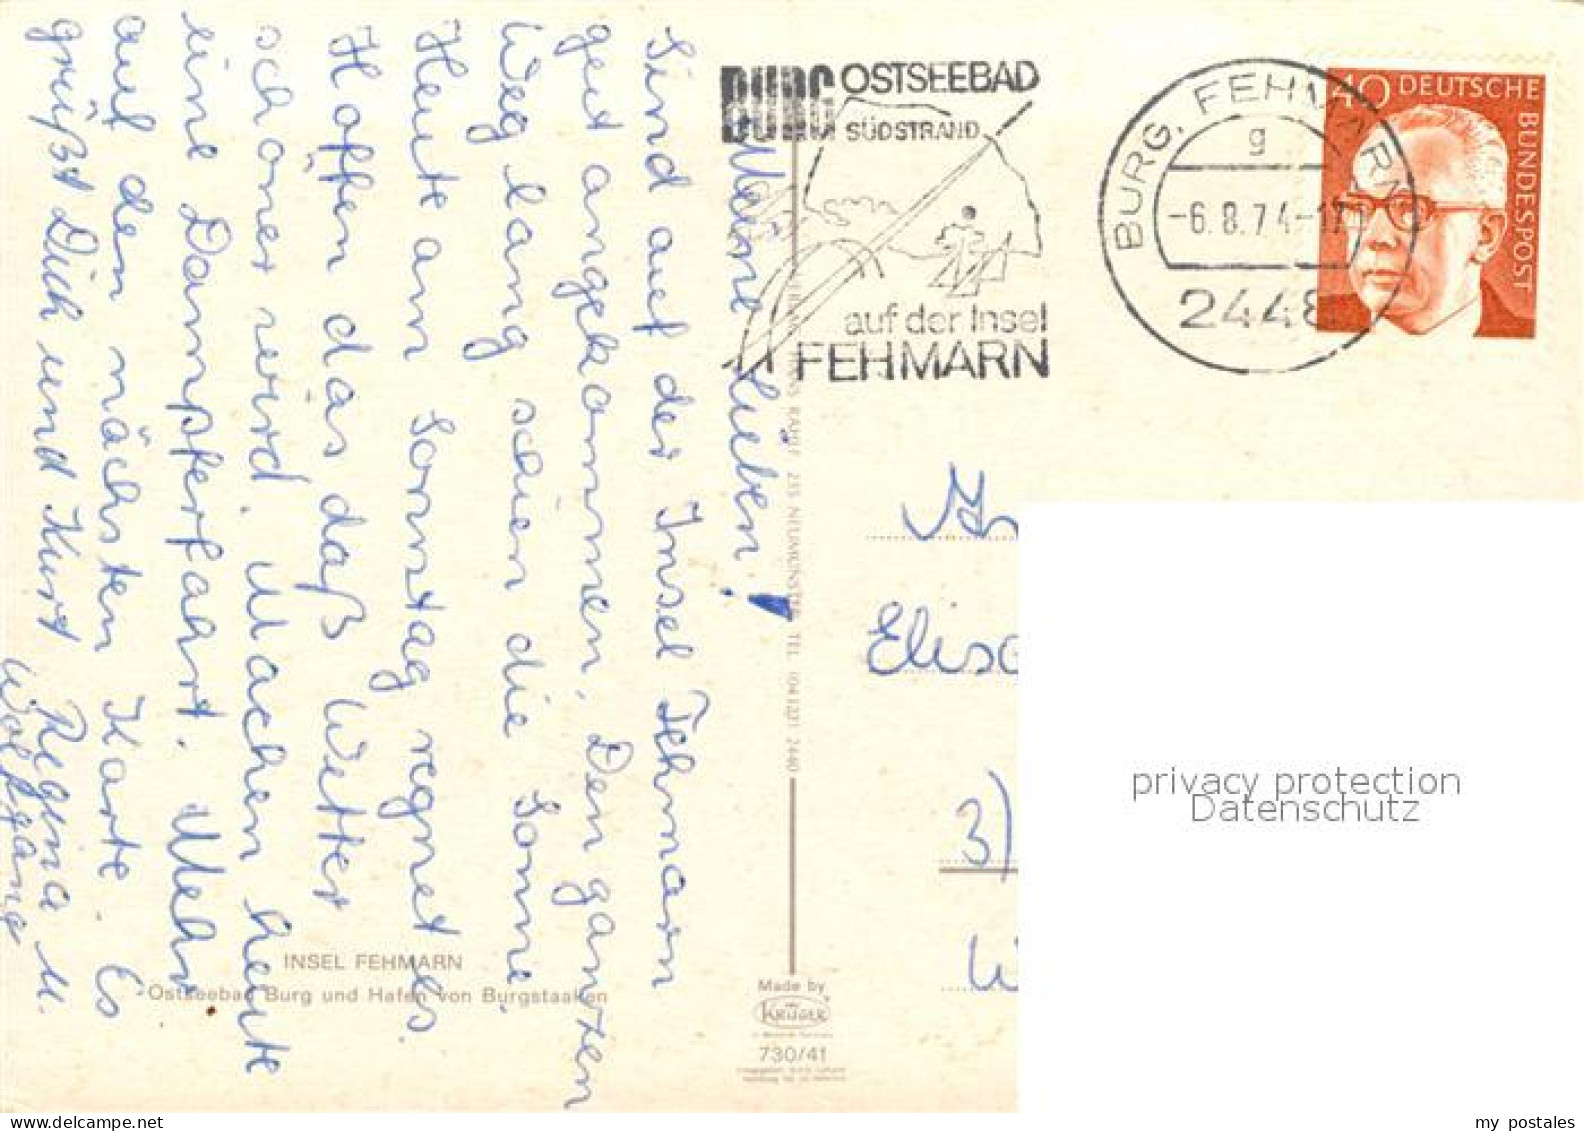 Meine Lieben!
Sind auf der Insel Fehmarn
gut angekommen. Den ganzen
Weg lang schien die Sonne.
Heute am Sonntag regnet es.
Hoffen das daß Wetter
schöner wird. Machen heute
eine Dampferfahrt. Mehr
auf den nächsten Karte. Es
grüßt Dich und Kurt Regina u.
Wolfgang
INSEL FEHMARN
Ostseebad Burg und Hafen von Burgstaaken
BURG OSTSEEBAD
SÜDSTRAND
auf der Insel
FEHMARN
BURG, FEHMARN
g
-6.8.74-17
2448
40 DEUTSCHE
BUNDESPOST
235 NEUMÜNSTER TEL. (04321) 2440
Made by
KRÜGER
730/41
Elisa
3)
privacy protection
Datenschutz
my postales